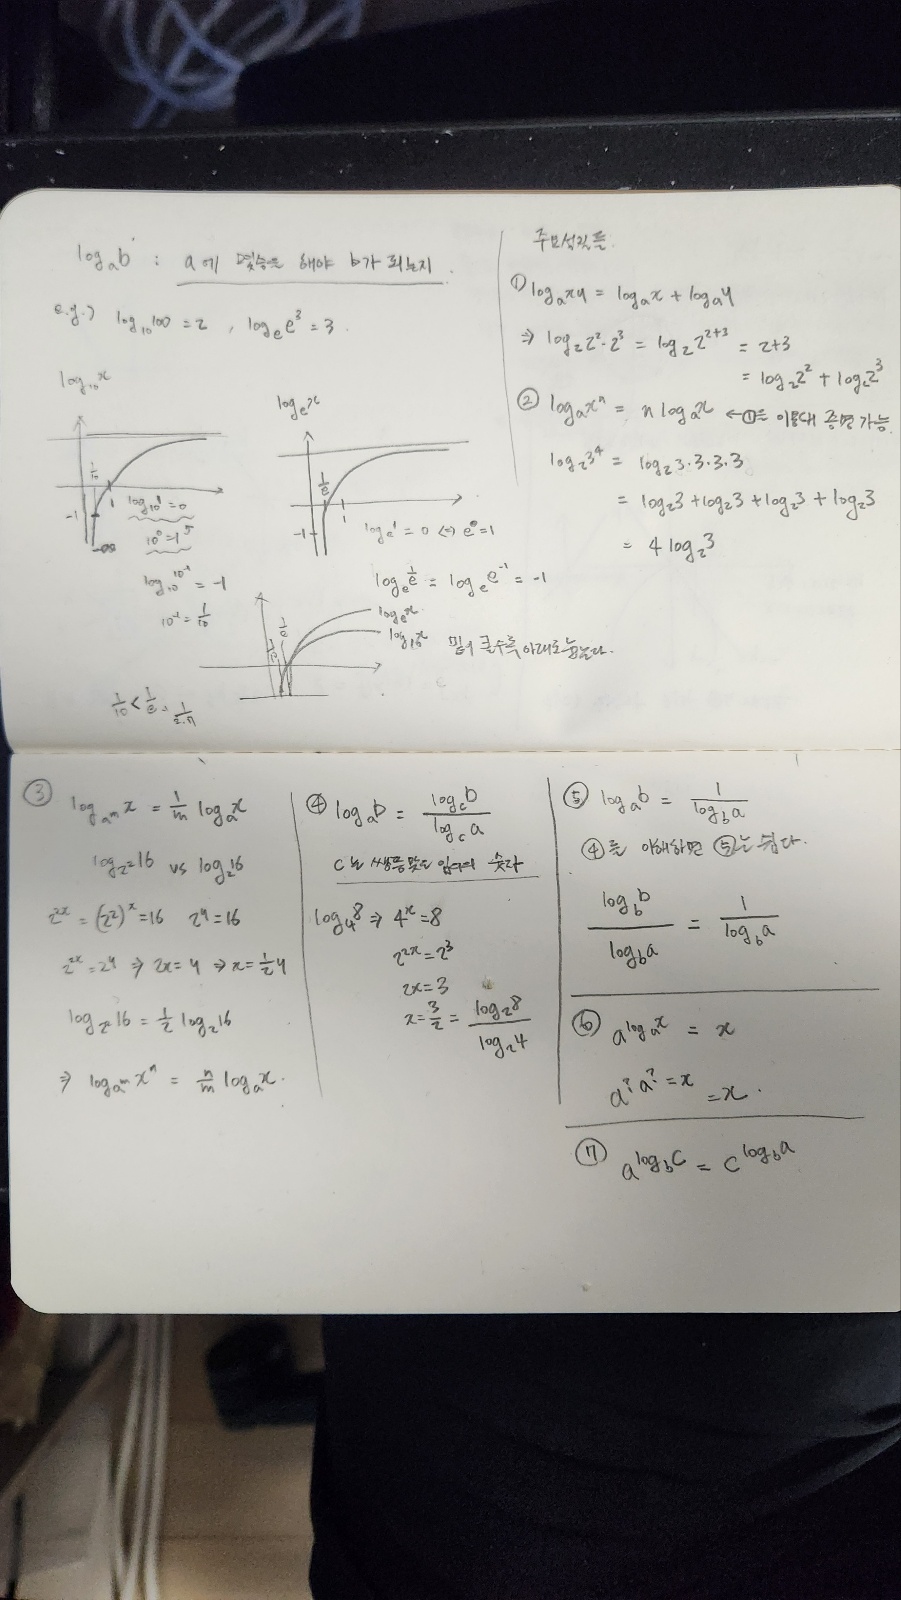 log_a b : a에 몇승을 해야 b가 되는지
e.g.) log_10 100 = 2 , log_e e^3 = 3
log_10 x
1/10
1
-1
-∞
log_10 1 = 0
10^0 = 1
log_10 10^-1 = -1
10^-1 = 1/10
log_e x
1/e
1
-1
log_e 1 = 0 ⇔ e^0 = 1
log_e 1/e = log_e e^-1 = -1
log_e x
log_10 x
1/e
1/10
밑이 클수록 아래로
1/10 < 1/e = 1/2.7
주요성질들
① log_a xy = log_a x + log_a y
⇒ log_2 2^2·2^3 = log_2 2^2+3 = 2+3
= log_2 2^2 + log_2 2^3
② log_a x^n = n log_a x ← ①을 이용해 증명 가능.
log_2 3^4 = log_2 3·3·3·3
= log_2 3 + log_2 3 + log_2 3 + log_2 3
= 4 log_2 3
③ log_a^m x = 1/m log_a x
log_2^2 16 vs log_2 16
2^2x = (2^2)^x = 16 2^y = 16
2^2x = 2^y ⇒ 2x = y ⇒ x = 1/2 y
log_2^2 16 = 1/2 log_2 16
⇒ log_a^m x^n = n/m log_a x.
④ log_a b = log_c b / log_c a
c는 임의의 숫자
log_4 8 ⇒ 4^x = 8
2^2x = 2^3
2x = 3
x = 3/2 = log_2 8 / log_2 4
⑤ log_a b = 1 / log_b a
④를 이해하면 ⑤는 쉽다.
log_b b / log_b a = 1 / log_b a
⑥ a^log_a x = x
a^? a^? = x = x.
⑦ a^log_b c = c^log_b a